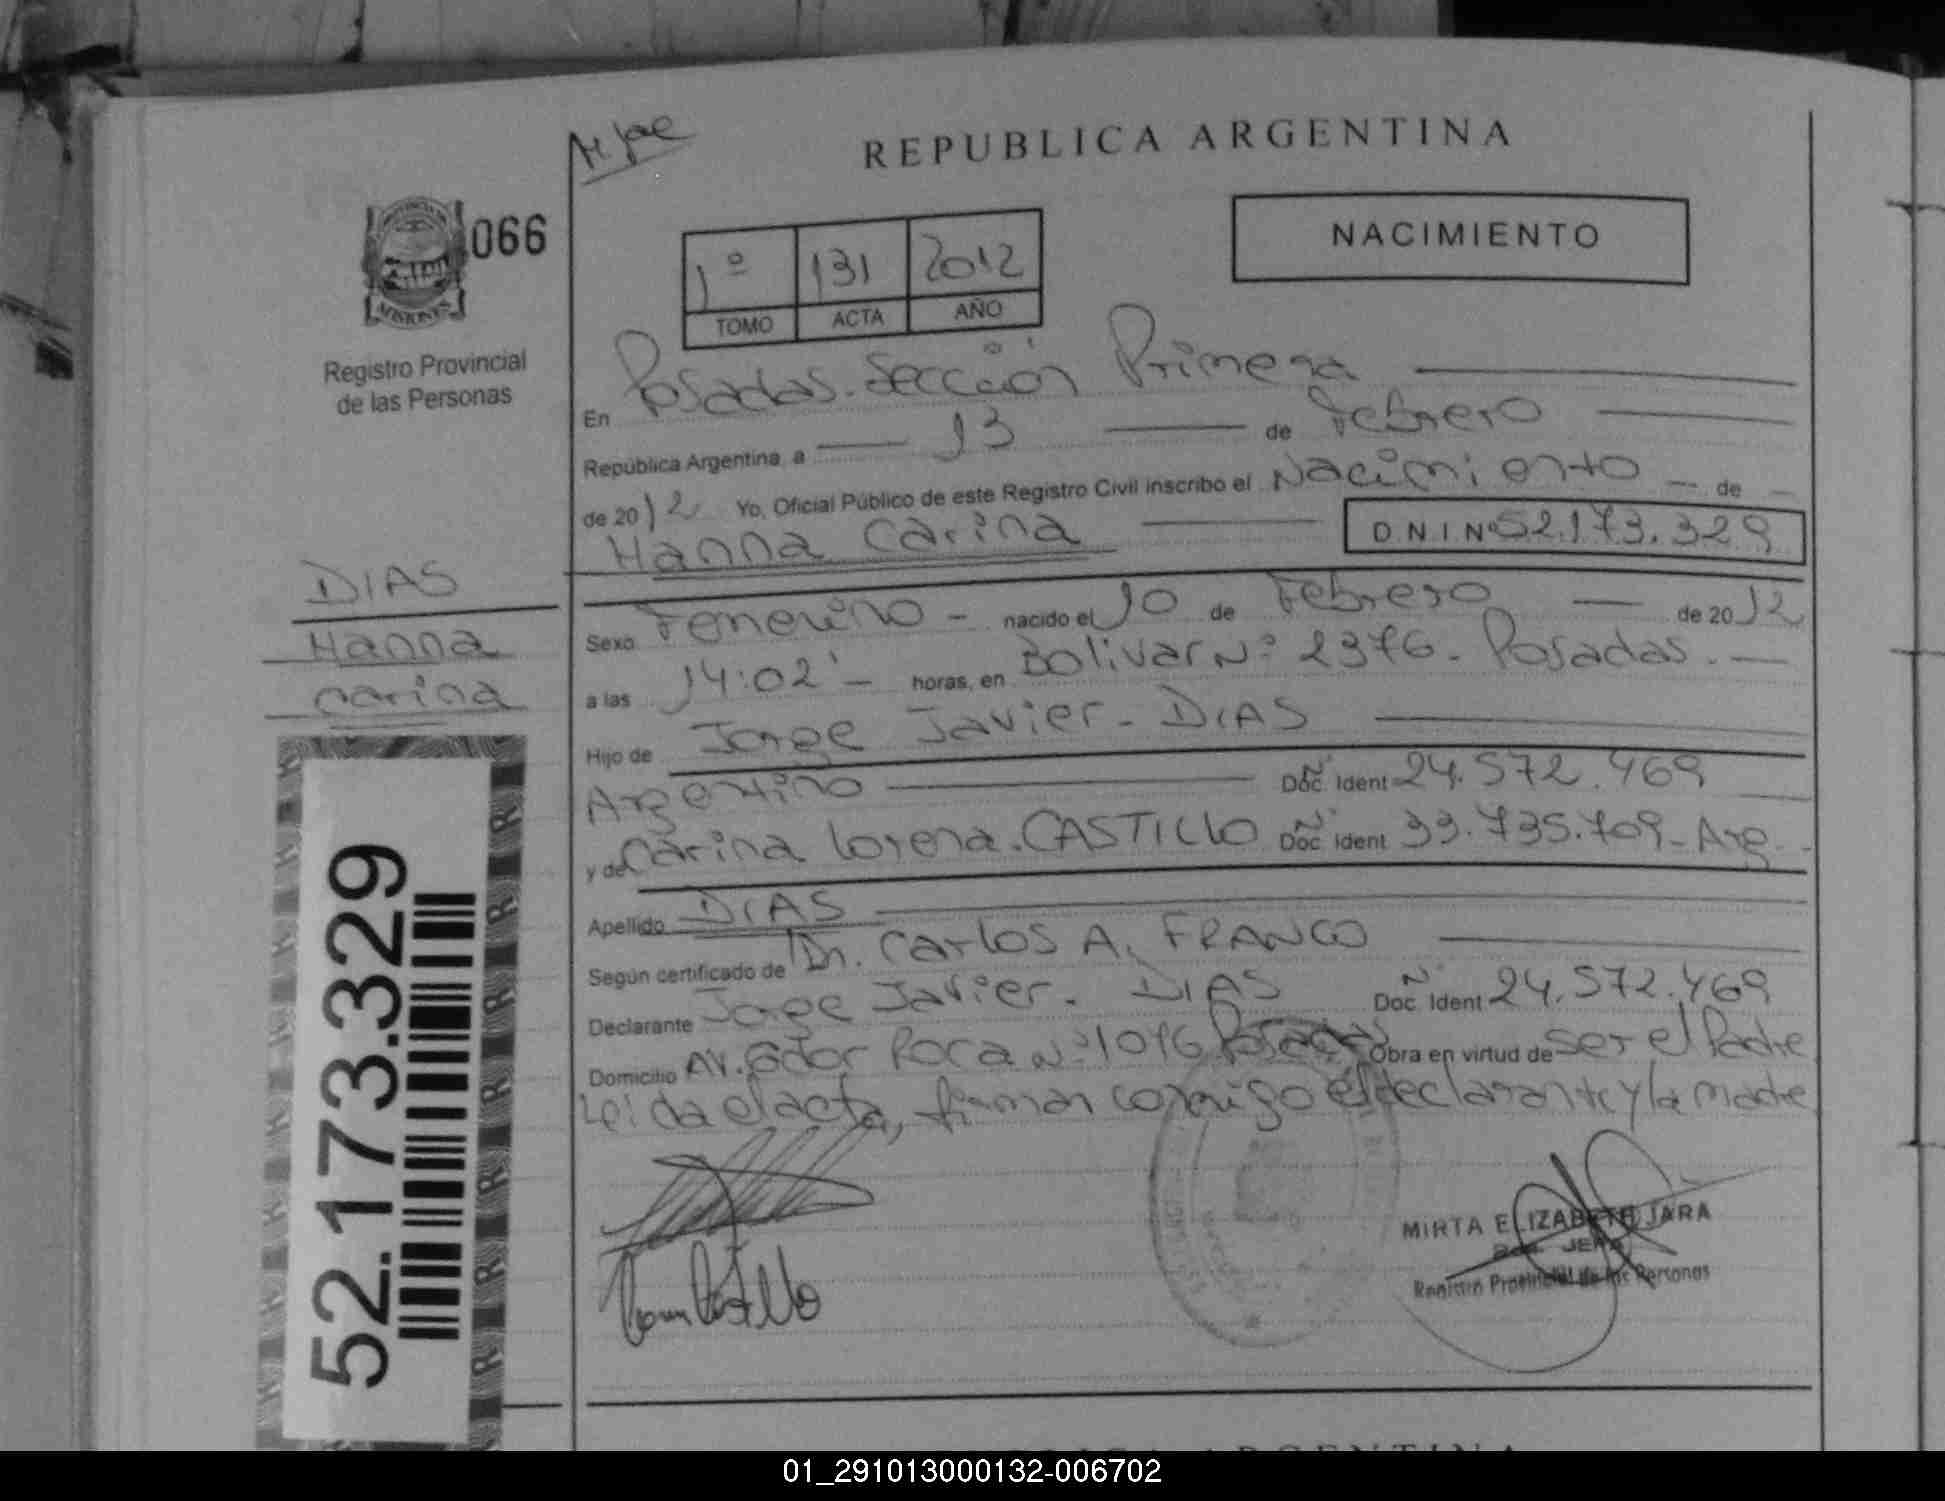 REPUBLICA ARGENTINA
066
PROVINCIA DE
MISIONES
Registro Provincial
de las Personas
NACIMIENTO
1º 131 2012
TOMO ACTA AÑO
En Posadas. Sección Primera
República Argentina, a 13 de Febrero
de 2012 Yo, Oficial Público de este Registro Civil inscribo el Nacimiento de
Hanna Carina D.N.I. Nº 52.173.329
DIAS
Hanna
Carina
Sexo Femenino - nacido el 10 de Febrero de 2012
a las 14:02' - horas, en Bolivar Nº 2376. Posadas.
Hijo de Jorge Javier - DIAS
Argentino Nº Doc. Ident 24.572.469
y de Carina Lorena. CASTILLO Nº Doc. Ident 33.735.709 - Arg.
Apellido DIAS
Según certificado de Dr. Carlos A. FRANCO
Declarante Jorge Javier. DIAS Nº Doc. Ident 24.572.469
Domicilio AV. Roca Nº 1046 Posadas Obra en virtud de ser el Padre
Leida el acta, firman conmigo el declarante y la madre
MIRTA ELIZABETH JARA
Registro Provincial de las Personas
52.173.329
01_291013000132-006702